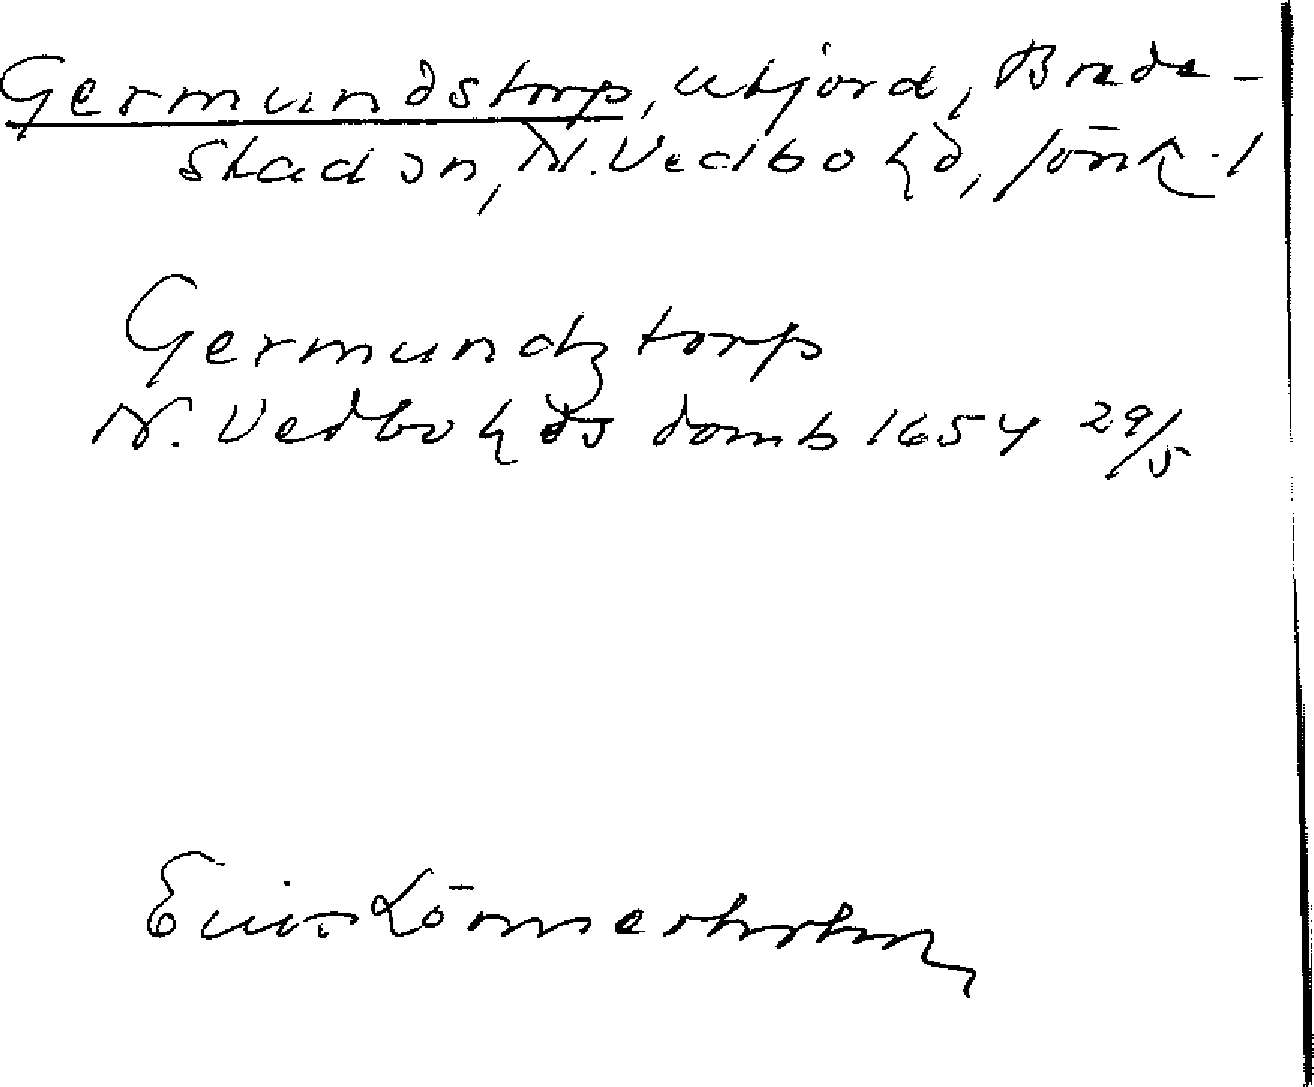 Germundstorp, utjord, Breda-
stad sn, N. Vedbo hd, Jönk. l
Germundztorp
N. Vedbo hds domb 1654 29/5